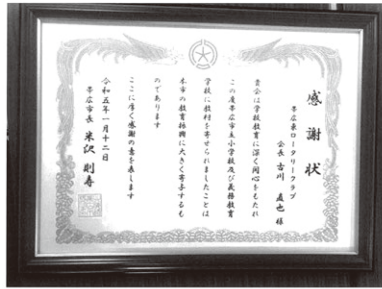 感謝状
帯広東ロータリークラブ
会長 古川 直也 様
貴会は学校教育に深く関心をもたれ
この度帯広市立小学校及び義務教育
学校に教材を寄せられましたことは
本市の教育振興に大きく寄与するも
のであります
ここに厚く感謝の意を表します
令和五年一月十二日
帯広市長 米沢 則寿